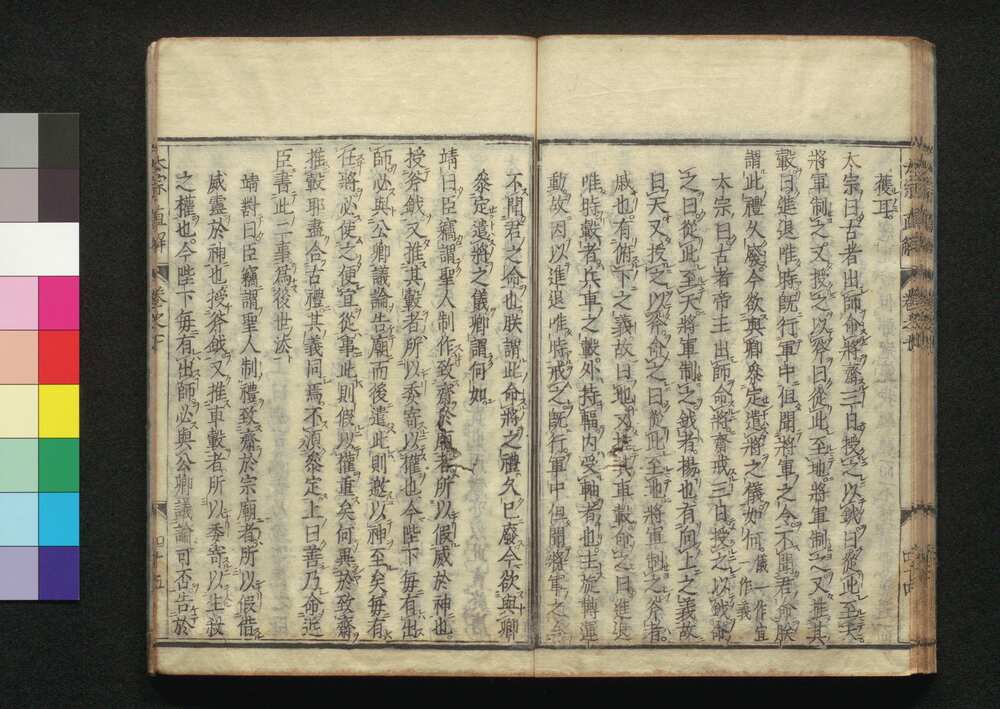 獲耳
太宗曰古者出師命將齋三日授之以鉞曰從此至天
將軍制之又授之以斧曰從此至地將軍制之又推其
轂曰進退唯時旣行軍中但聞將軍之令不聞君命朕
謂此禮久廢今欲與卿參定遣將之儀如何 儀一作宜一作義
太宗曰古者帝王出師命將齋戒三日授之以鉞命
之曰從此至天將軍制之鉞者揚也有向上之義故
曰天又授之以斧命之曰從此至地將軍制之斧者
戚也有俯下之義故曰地又推其車轂命之曰進退
唯時轂者兵車之轂外持輻內受軸者也主旋轉運
動故因以進退唯時戒之旣行軍中但聞將軍之令
不聞君之命也朕謂此命將之禮久已廢今欲與卿
參定遣將之儀卿謂何如
靖曰臣竊謂聖人制作致齋於廟者所以假威於神也
授斧鉞又推其轂者所以委寄以權也今陛下每有出
師必與公卿議論告廟而後遣此則邀以神至矣每有
任將必使之便宜從事此則假以權重矣何異於致齋
推轂耶盡合古禮其義同焉不須參定上曰善乃命近
臣書此二事爲後世法
靖對曰臣竊謂聖人制禮致齋於宗廟者所以假借
威靈於神也授斧鉞又推車轂者所以委寄以生殺
之權也今陛下每有出師必與公卿議論可否告於
四十五